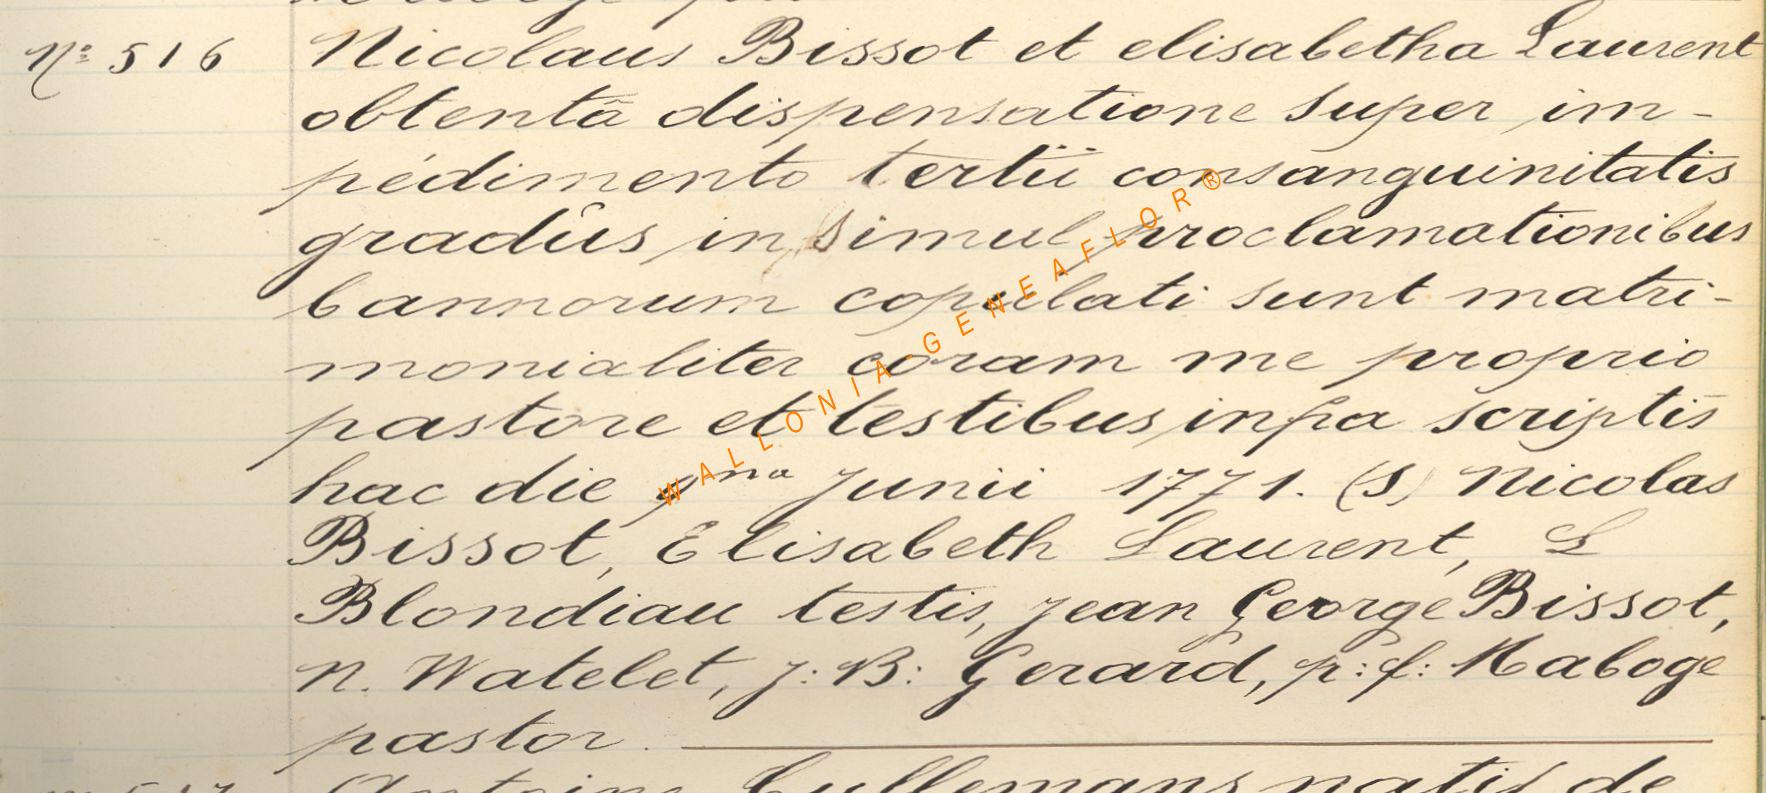 Nº 516 Nicolaus Bissot et elisabetha Laurent
obtentâ dispensatione super im-
pédimento tertii consanguinitatis
gradûs, in simul proclamationibus
bannorum copulati sunt matri-
monialiter coram me proprio
pastore et testibus infra scriptis
hac die 9na Junii 1771. (S) Nicolas
Bissot, Elisabeth Laurent, L
Blondiau testis, Jean George Bissot,
N. Watelet, J: B: Gerard, p: f: Haboge
pastor.
Antoine Cullemans natif de
WALLONIA-GENEAFLOR®